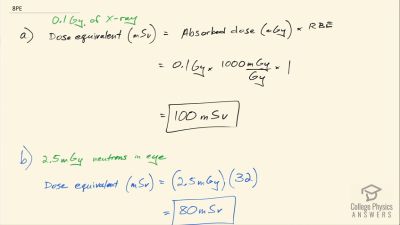 8PE
0.1 Gy of X-ray
a) Dose equivalent (mSv) = Absorbed dose (mGy) × RBE
= 0.1 Gy × 1000 mGy/Gy × 1
= 100 mSv
b) 2.5 mGy neutrons in eye
Dose equivalent (mSv) = (2.5 mGy)(32)
= 80 mSv
College Physics
ANSWERS